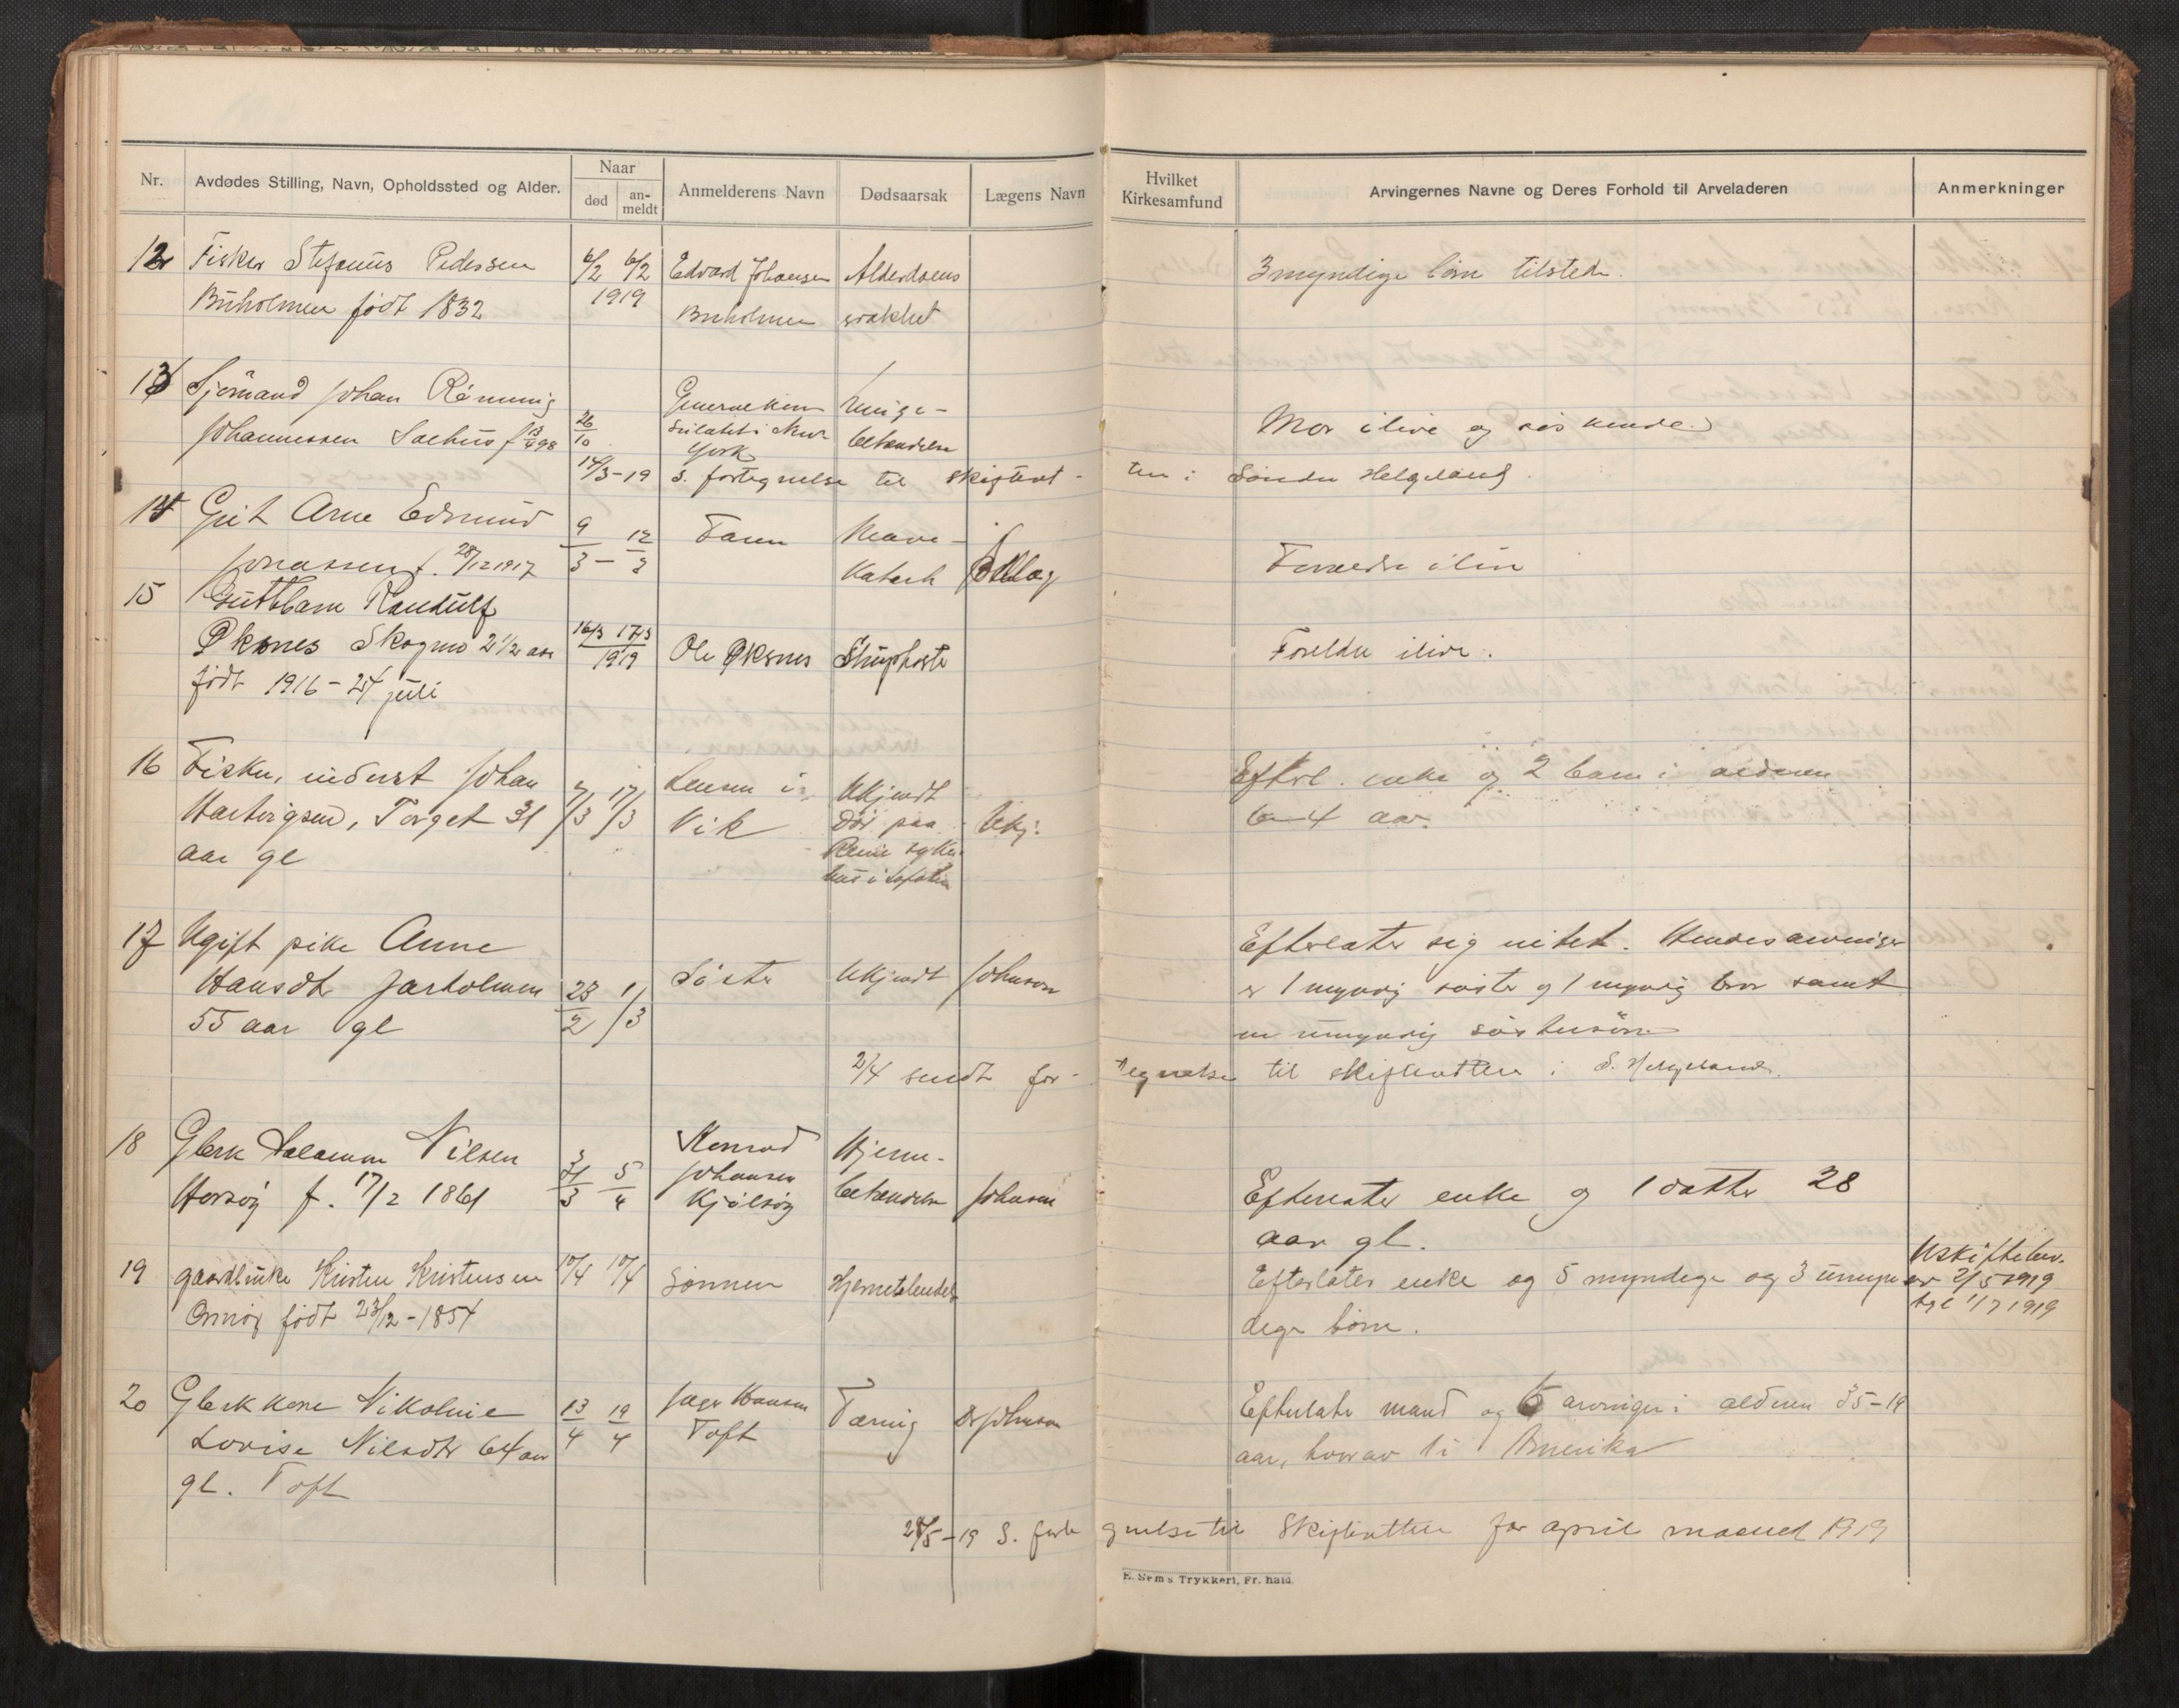 Nr.
Avdødes Stilling, Navn, Opholdssted og Alder.
Naar
død
an-
meldt
Anmelderens Navn
Dødsaarsak
Lægens Navn
Hvilket
Kirkesamfund
Arvingernes Navne og Deres Forhold til Arveladeren
Anmerkninger
12 Fisker Stefanus Pedersen 6/2 6/2 Edvard Johansen Alderdoms 3 myndige børn tilstede.
Buholmen født 1832 1919 Buholmen svakhet
13 Sjømand Johan Rønning Generalkon Lunge-
Johannessen f 13/4 98 26/10 sulatet i New betændelse Mor i live og søskende
York
14/3-19 S. fortegnelse til skifteret- ten i Søndre Helgeland
14 Gut Arne Edmund 9/3 - 12/3 Faren Mave-
Jonassen f. 28/12 1917 Katarh Forældre i live
15 Guttbarn Randulf
Øksnes Skogmo 2 1/2 aar 16/3 17/3 1919 Ole Øksnes Strupehoste Foreldre ilive.
født 1916 - 24 juli
16 Fisker, inderst Johan 7/3 17/3 Lensm i Ukjendt Efterl. enke og 2 barn i alderen
Hartvigsen, Torget 31 Vik Død paa Ukj. 6-4 aar.
aar gl Reine syke
hus i Lofoten
17 Ugift pike Anne Efterlater sig intet. Hendes arvinger
Hansdtr 23/2 1/3 Søster Ukjendt Johnson er 1 myndig søster og 1 myndig bror samt
55 aar gl en umyndig søstersøn
2/4 sendt for- tegnelse til skifteretten i S. Helgeland.
18 Gbruk Nilsen 31/3 5/4 Konrad Hjerne-
Horsøy f. 17/2 1861 Johansen betændelse Johnson Efterlater enke og 1 datter 28
Kjølsøy aar gl.
19 Kristen Kristensen 10/4 10/4 Sønnen Efterlater enke og 5 myndige og 3 umyn
født 23/12 - 1854 dige børn.
Uskiftebev.
av 2/5 1919
tgl 1/7 1919
20 Gbrk kone Nikoline 13/4 19/4 Hansen Tæring Dr Johnson Efterlater mand og 6 arvinger i alderen 35-19
Lovise Nilsdtr 64 aar Toft aar, hvorav 1 i Amerika
gl. Toft
28/5-19 S. forte gnelse til Skifteretten for april maaned 1919
E. Sems Trykkeri, Fr.hald.